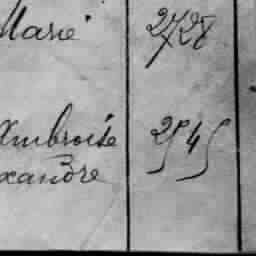 Marie 2728
Ambroise 2545
xandre